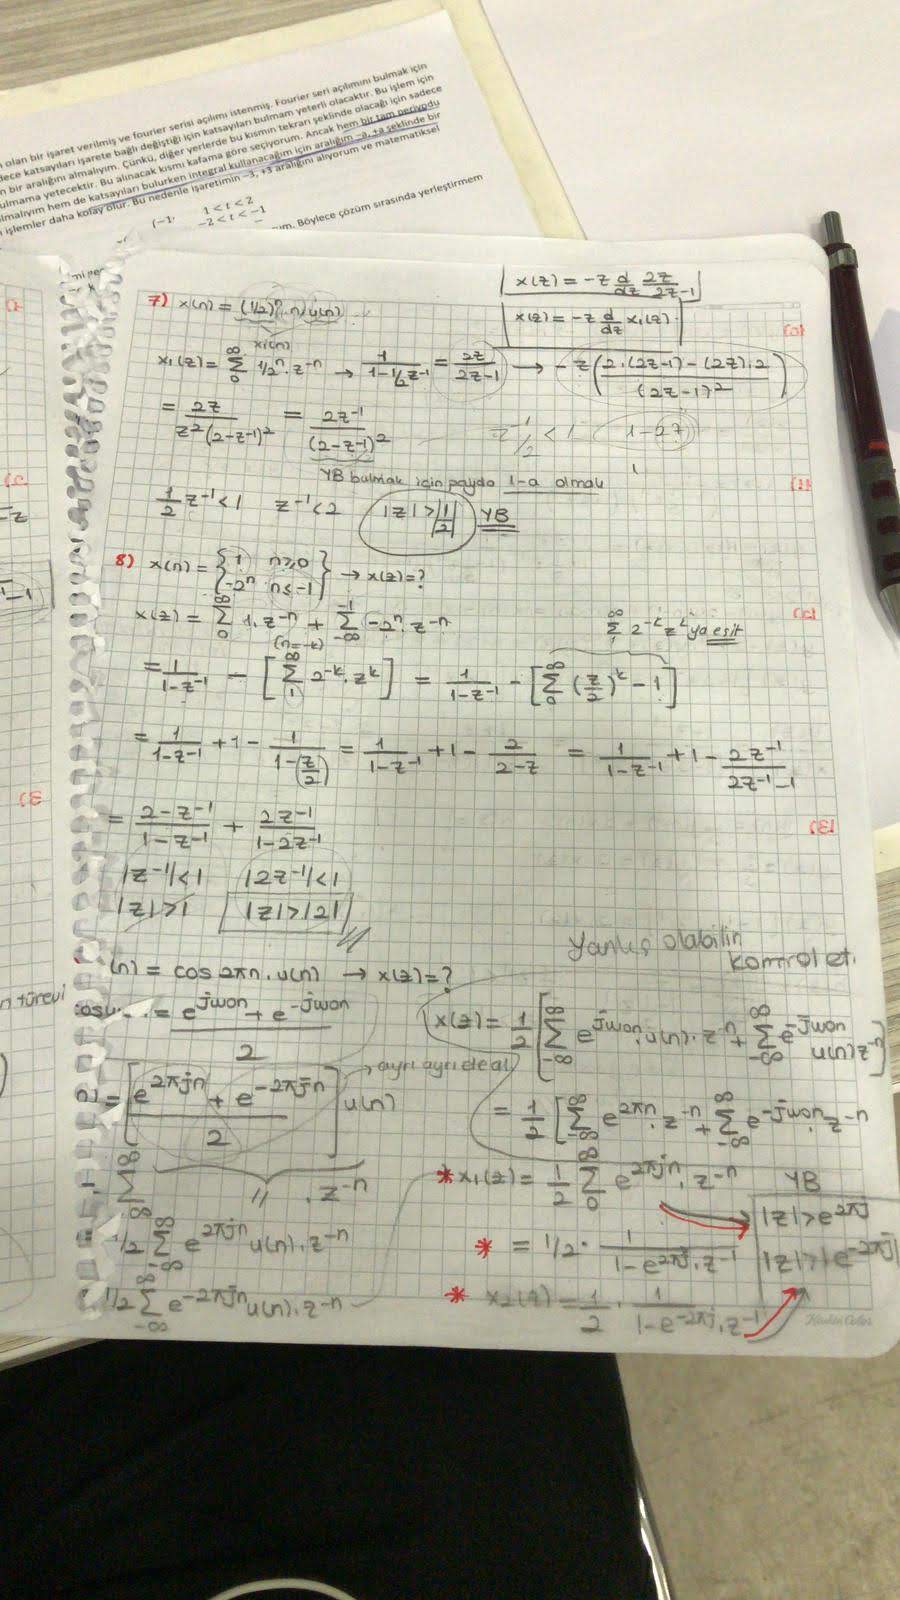 olan bir işaret verilmiş ve fourier serisi açılımı istenmiş. Fourier seri açılımını bulmak için
katsayıları işarete bağlı değiştiği için katsayıları bulmam yeterli olacaktır. Bu işlem için
bir aralığını almalıyım. Çünkü, diğer yerlerde bu kısmın tekrarı şeklinde olacağı için sadece
yetecektir. Bu alınacak kısmı kafama göre seçiyorum. Ancak hem bir tam periyodu
hem de katsayıları bulurken integral kullanacağım için aralığım –a, +a şeklinde bir
işlemler daha kolay olur. Bu nedenle işaretimin –3, +3 aralığını alıyorum ve matematiksel
1 < t < 2
-2 < t < -1
Böylece çözüm sırasında yerleştirmem
x(z) = -z d/dz 2z/2z-1
7) x(n) = (1/2)ⁿ.n.u(n)
x(z) = -z d/dz x₁(z).
x₁(n)
x₁(z) = ∞ Σ 0 1/2ⁿ.z⁻ⁿ → 1/1-1/2z⁻¹ = 2z/2z-1 → -z(2.(2z-1)-(2z).2/(2z-1)²)
= 2z/z²(2-z⁻¹)² = 2z⁻¹/(2-z⁻¹)² z⁻¹/2 < 1 1-2z
YB bulmak için payda 1-a olmalı
1/2 z⁻¹<1 z⁻¹<2 |z|>|1/2| YB
8) x(n) = {1 n≥0
-2ⁿ n≤-1} → x(z)=?
x(z) = ∞ Σ 0 1.z⁻ⁿ + -1 Σ -∞ (-2ⁿ.z⁻ⁿ
(n=-k)
∞ Σ 1 2⁻ᵏ zᵏ ya eşit
= 1/1-z⁻¹ - [∞ Σ 1 2⁻ᵏ.zᵏ] = 1/1-z⁻¹ - [∞ Σ 0 (z/2)ᵏ - 1]
= 1/1-z⁻¹ + 1 - 1/1-(z/2) = 1/1-z⁻¹ + 1 - 2/2-z = 1/1-z⁻¹ + 1 - 2z⁻¹/2z⁻¹-1
= 2-z⁻¹/1-z⁻¹ + 2z⁻¹/1-2z⁻¹
|z⁻¹|<1 |2z⁻¹|<1
|z|>1 |z|>|2|
Yanlış olabilir
kontrol et.
(n) = cos2πn.u(n) → x(z)=?
= e^jwon + e^-jwon/2
x(z) = 1/2 [∞ Σ -∞ e^jwon.u(n).z⁻ⁿ + ∞ Σ -∞ e^-jwon u(n)z⁻ⁿ]
= [e^2πjn + e^-2πjn/2] u(n) → ayrı ayrı ele al
= 1/2 [∞ Σ -∞ e^2πn.z⁻ⁿ + ∞ Σ -∞ e^-jwon.z⁻ⁿ
∞ Σ -∞ // .z⁻ⁿ
* x₁(z) = 1/2 ∞ Σ 0 e^2πjn.z⁻ⁿ
YB
|z|>e^2πj
|z|>|e^-2πj|
1/2 ∞ Σ -∞ e^2πjn u(n).z⁻ⁿ
* = 1/2. 1/1-e^2πj.z⁻¹
1/2 ∞ Σ -∞ e^-2πjn u(n).z⁻ⁿ
* x₂(z) = 1/2 . 1/1-e^-2πj.z⁻¹
n türevi